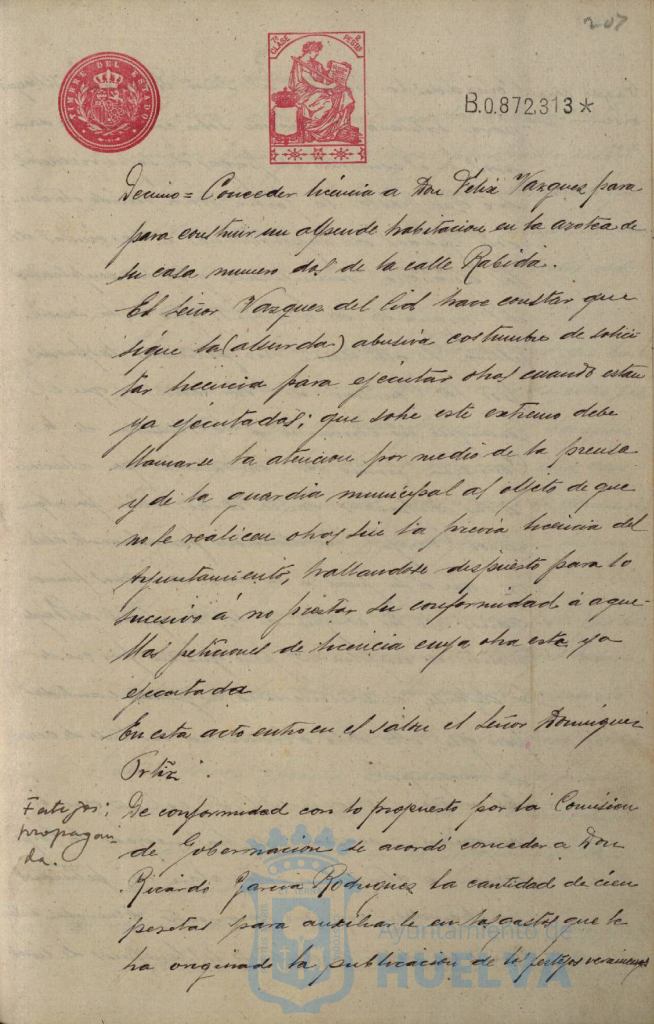 207
TIMBRE DEL ESTADO
7ª CLASE
PESETAS
B.0.872.313*
Decimo = Conceder licencia a Don Felix Vazquez para
para construir un alpende habitacion en la azotea de
su casa numero dos de la calle Rabida.
El Señor Vazquez del Cid hace constar que
sigue la (absurda) abusiva costumbre de solici-
tar licencia para ejecutar obras cuando estan
ya ejecutadas; que sobre este extremo debe
llamarse la atencion por medio de la prensa
y de la guardia municipal al objeto de que
no se realicen obras sin la previa licencia del
Ayuntamiento, hallandose dispuesto para lo
sucesivo á no prestar su conformidad á aque-
llas peticiones de licencia cuya obra este ya
ejecutada
En este acto entro en el salon el Señor Dominguez
Ortiz.
Festejos:
propagan-
da.
De conformidad con lo propuesto por la Comision
de Gobernacion se acordó conceder a Don
Ricardo Garcia Rodriguez la cantidad de cien
pesetas para auxiliarle en los gastos que le
ha originado la publicacion de los festejos veraniegos
Ayuntamiento de
HUELVA